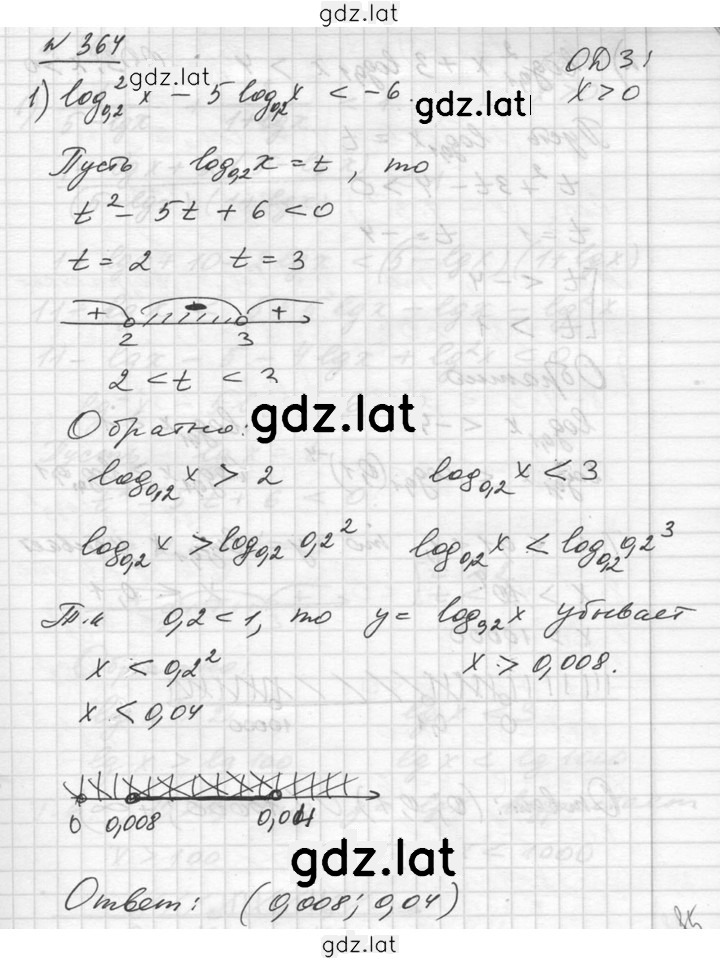 gdz.lat
N 364
gdz.lat
ОДЗ:
1) log²₀,₂ x - 5 log₀,₂ x < -6
x > 0
gdz.lat
Пусть log₀,₂ x = t, то
t² - 5t + 6 < 0
t = 2 t = 3
+ - +
2 3
2 < t < 3
gdz.lat
Обратно:
log₀,₂ x > 2 log₀,₂ x < 3
log₀,₂ x > log₀,₂ 0,2² log₀,₂ x < log₀,₂ 0,2³
Т.к 0,2 < 1, то y = log₀,₂ x убывает
x < 0,2² x > 0,008.
x < 0,04
0 0,008 0,004
gdz.lat
Ответ: (0,008; 0,04)
gdz.lat